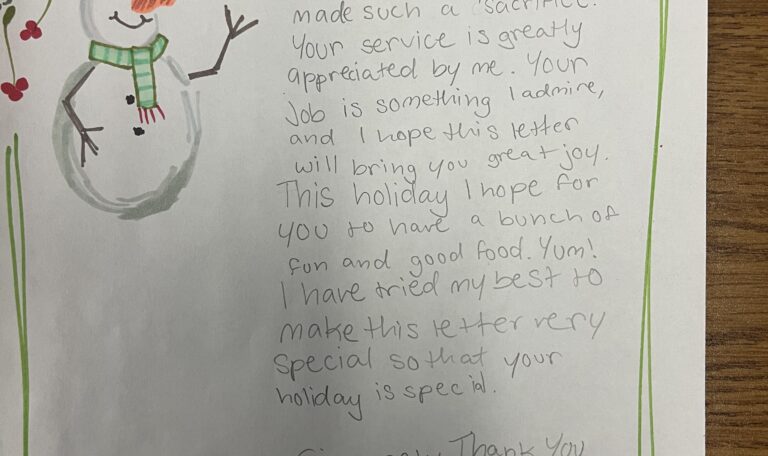 made such a sacrifice.
Your service is greatly
appreciated by me. Your
job is something I admire,
and I hope this letter
will bring you great joy.
This holiday I hope for
you to have a bunch of
fun and good food. Yum!
I have tried my best to
make this letter very
special so that your
holiday is special.
Thank You